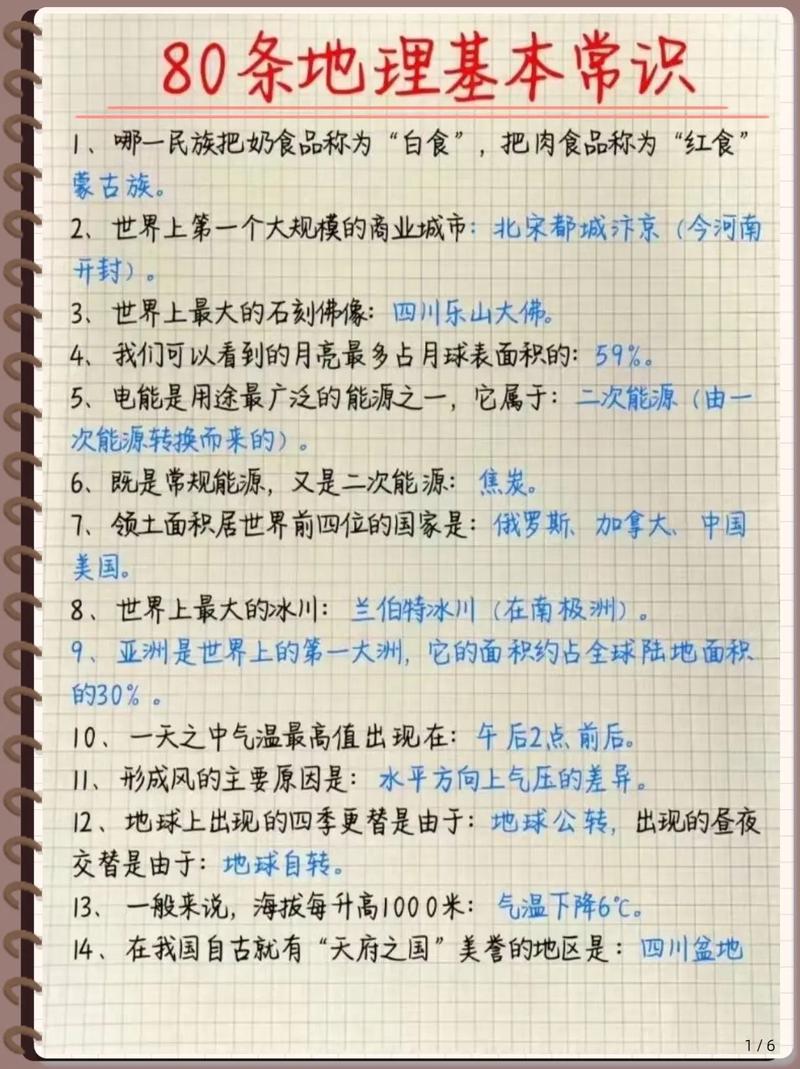 80条地理基本常识
1、哪一民族把奶食品称为“白食”，把肉食品称为“红食”
蒙古族。
2、世界上第一个大规模的商业城市：北宋都城汴京（今河南
开封）。
3、世界上最大的石刻佛像：四川乐山大佛。
4、我们可以看到的月亮最多占月球表面积的：59%。
5、电能是用途最广泛的能源之一，它属于：二次能源（由一
次能源转换而来的）。
6、既是常规能源，又是二次能源：焦炭。
7、领土面积居世界前四位的国家是：俄罗斯、加拿大、中国
美国。
8、世界上最大的冰川：兰伯特冰川（在南极洲）。
9、亚洲是世界上的第一大洲，它的面积约占全球陆地面积
的30%。
10、一天之中气温最高值出现在：午后2点前后。
11、形成风的主要原因是：水平方向上气压的差异。
12、地球上出现的四季更替是由于：地球公转，出现的昼夜
交替是由于：地球自转。
13、一般来说，海拔每升高1000米：气温下降6℃。
14、在我国自古就有“天府之国”美誉的地区是：四川盆地
1/6